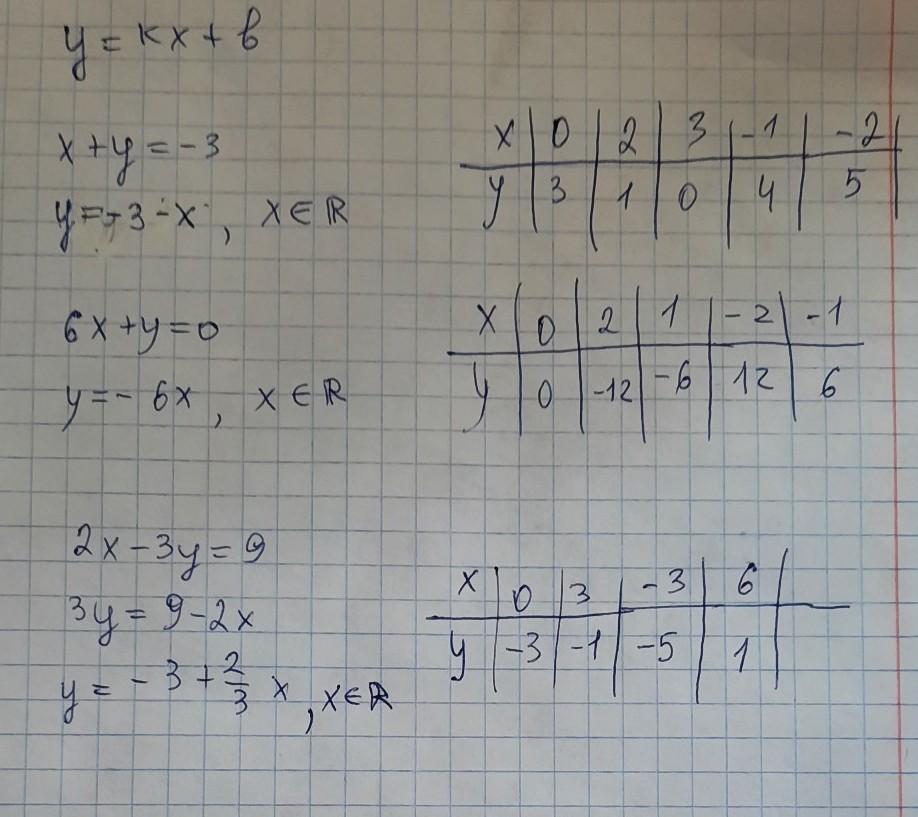 y = kx + b
x + y = -3
y = -3 - x , x ∈ ℝ
x | 0 | 2 | 3 | -1 | -2
y | 3 | 1 | 0 | 4 | 5
6x + y = 0
y = - 6x , x ∈ ℝ
x | 0 | 2 | 1 | -2 | -1
y | 0 | -12 | -6 | 12 | 6
2x - 3y = 9
3y = 9 - 2x
y = - 3 + 2/3 x , x ∈ ℝ
x | 0 | 3 | -3 | 6 |
y | -3 | -1 | -5 | 1 |